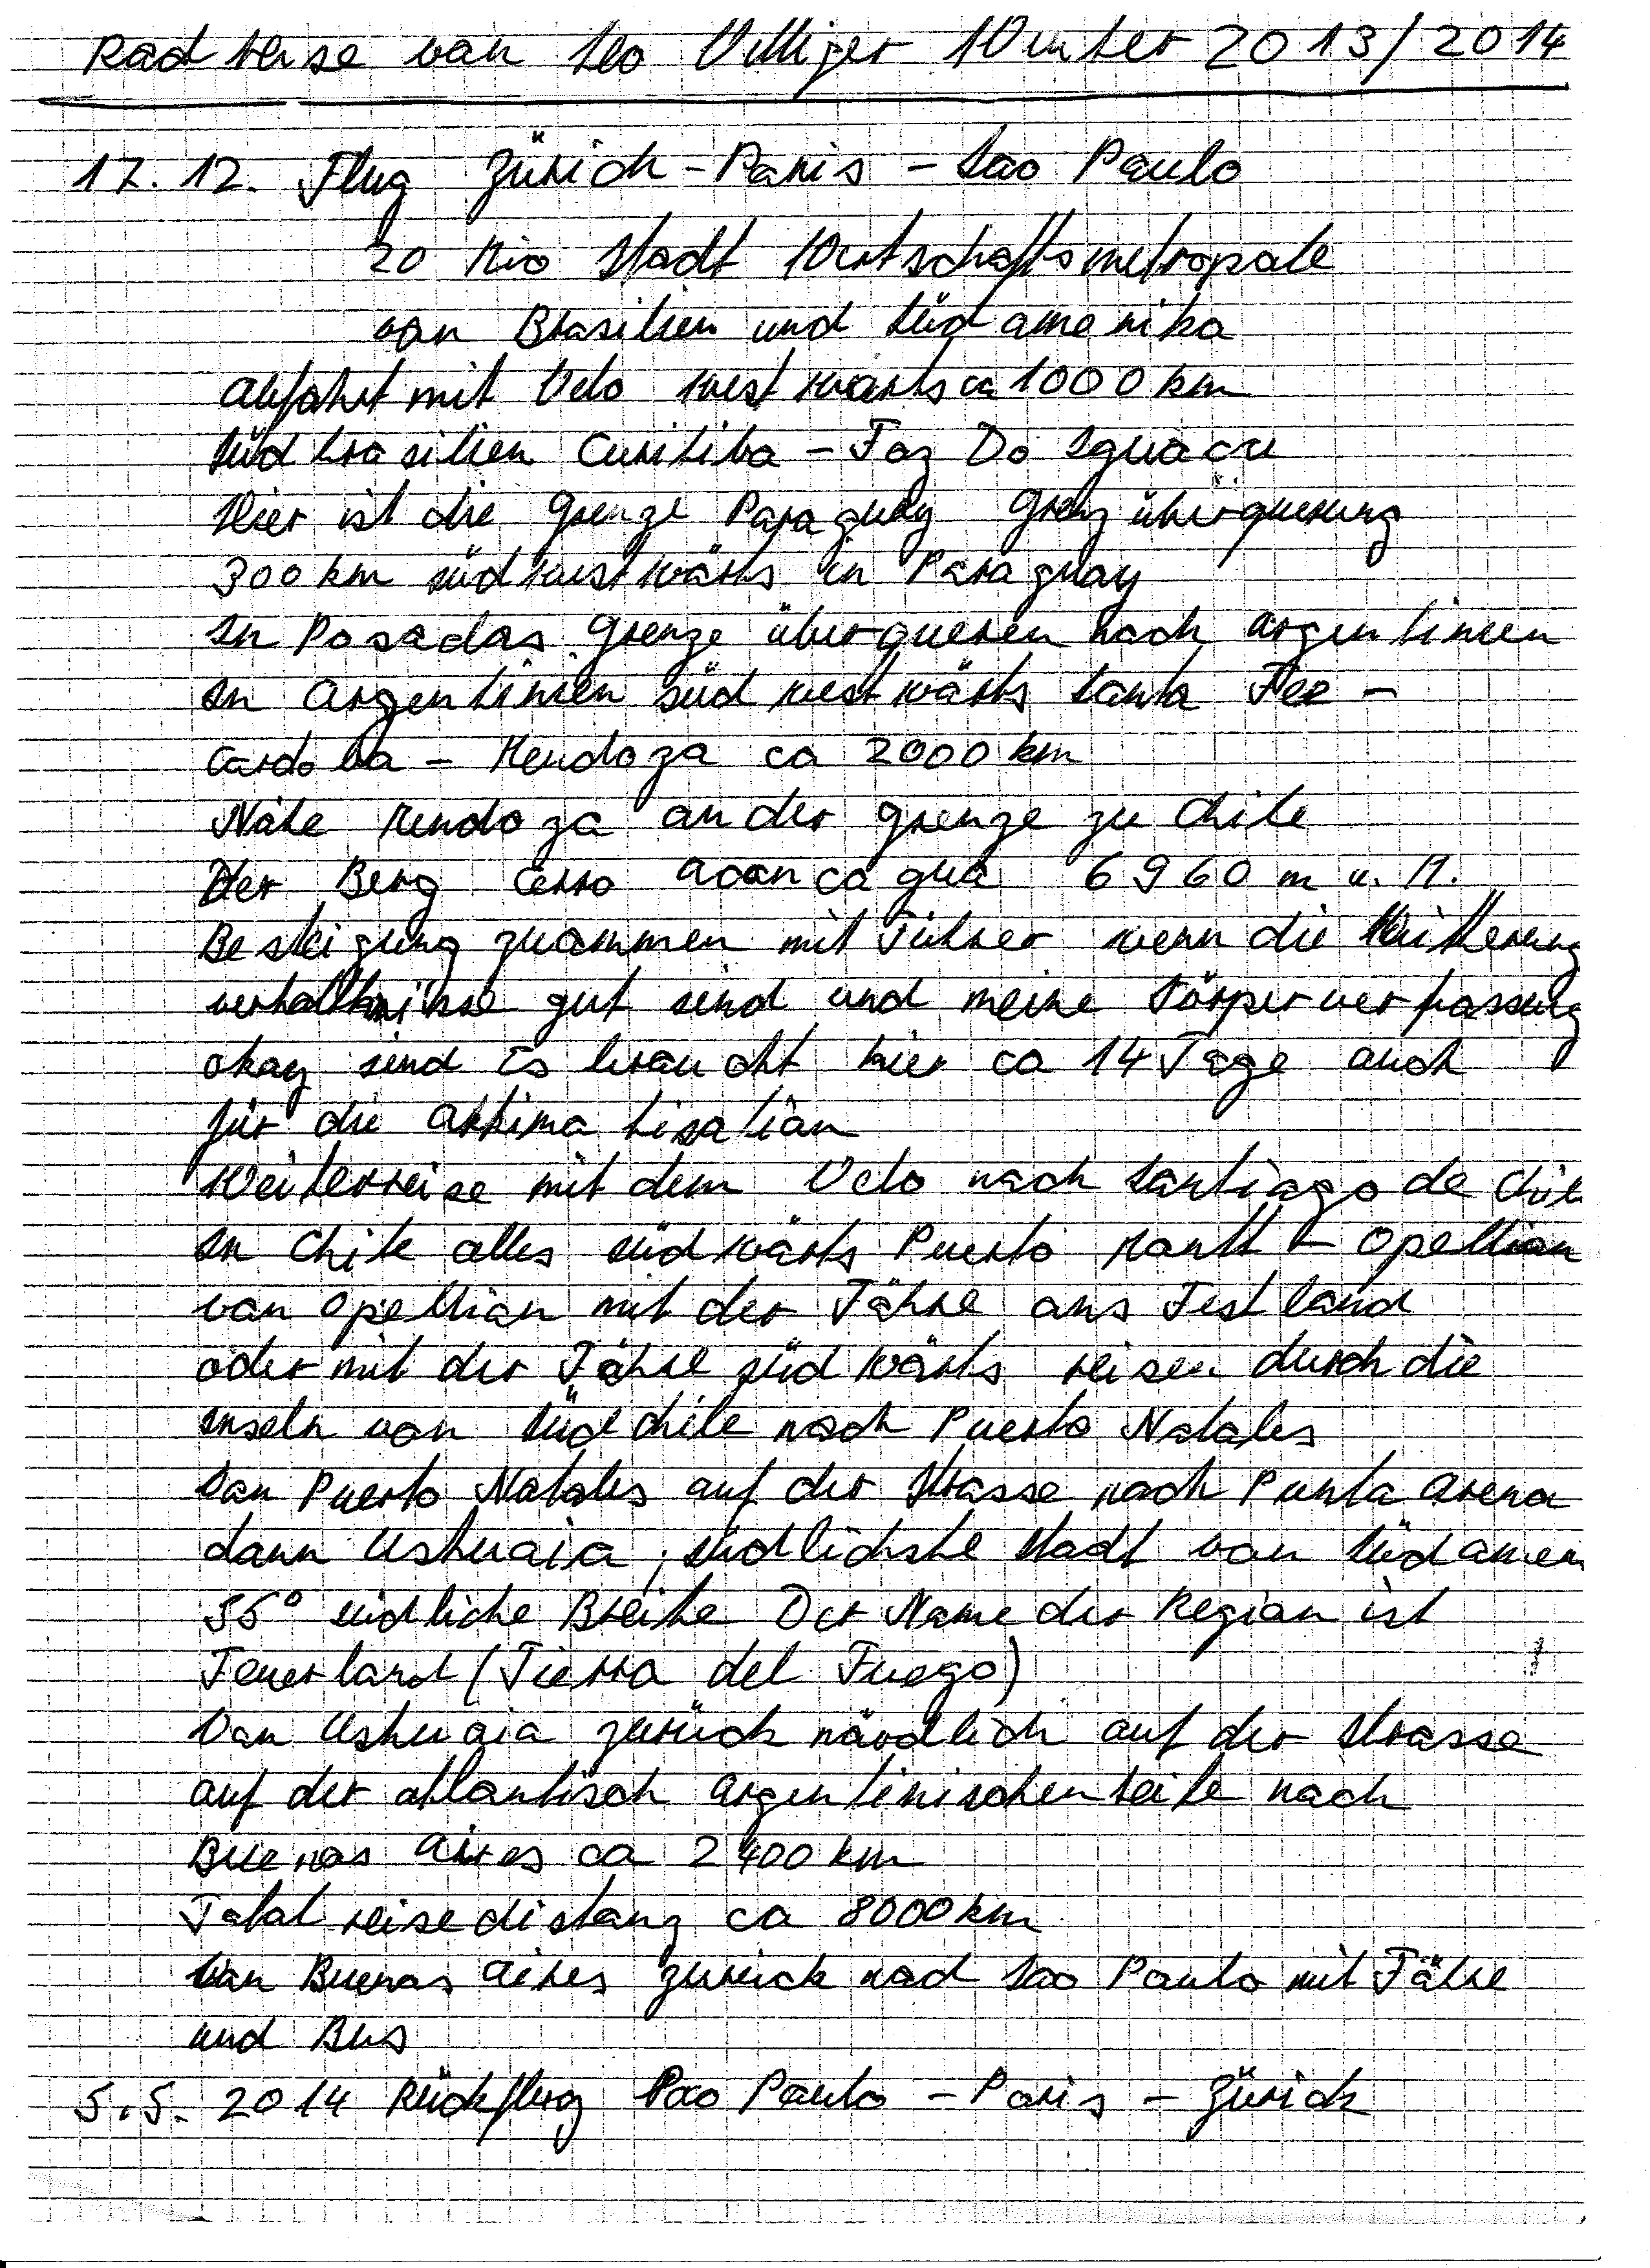 Radreise von Leo Villiger Winter 2013/2014
17.12. Flug Zürich - Paris - Sao Paulo
20 Mio Stadt Wirtschaftsmetropole
von Brasilien und Südamerika
Abfahrt mit Velo westwärts ca 1000 km
Südbrasilien Curitiba - Foz Do Iguacu
Hier ist die Grenze Paraguay Grenzüberquerung
300 km südwestwärts in Paraguay
In Posadas Grenze überqueren nach Argentinien
In Argentinien südwestwärts Santa Fee -
Cordoba - Mendoza ca 2000 km
Nähe Mendoza an der Grenze zu Chile
Der Berg Cerro Aconcagua 6960 m ü. M.
Besteigung zuammen mit Führer wenn die Witterung
verhältnisse gut sind und meine Körperverfassung
okay sind Es braucht hier ca 14 Tage auch
für die Akkimatisation
Weiterreise mit dem Velo nach Santiago de Chile
In Chile alles südwärts Puerto Montt - Opellion
von Opellion mit der Fähre ans Festland
oder mit der Fähre südwärts reisen durch die
Inseln von Südchile nach Puerto Natales
Von Puerto Natales auf der Strasse nach Punta Arena
dann Ushuaia, südlichste Stadt von Südamer
55° südliche Breite Der Name der Region ist
Feuerland (Tierra del Fuego)
Von Ushuaia zurück nördlich auf der Strasse
auf der atlantisch argentinischen Seite nach
Buenos Aires ca 2400 km
Total reisedistanz ca 8000 km
Von Buenos Aires zurück nad Sao Paulo mit Fähre
und Bus
5.5. 2014 Rückflug Sao Paulo - Paris - Zürich